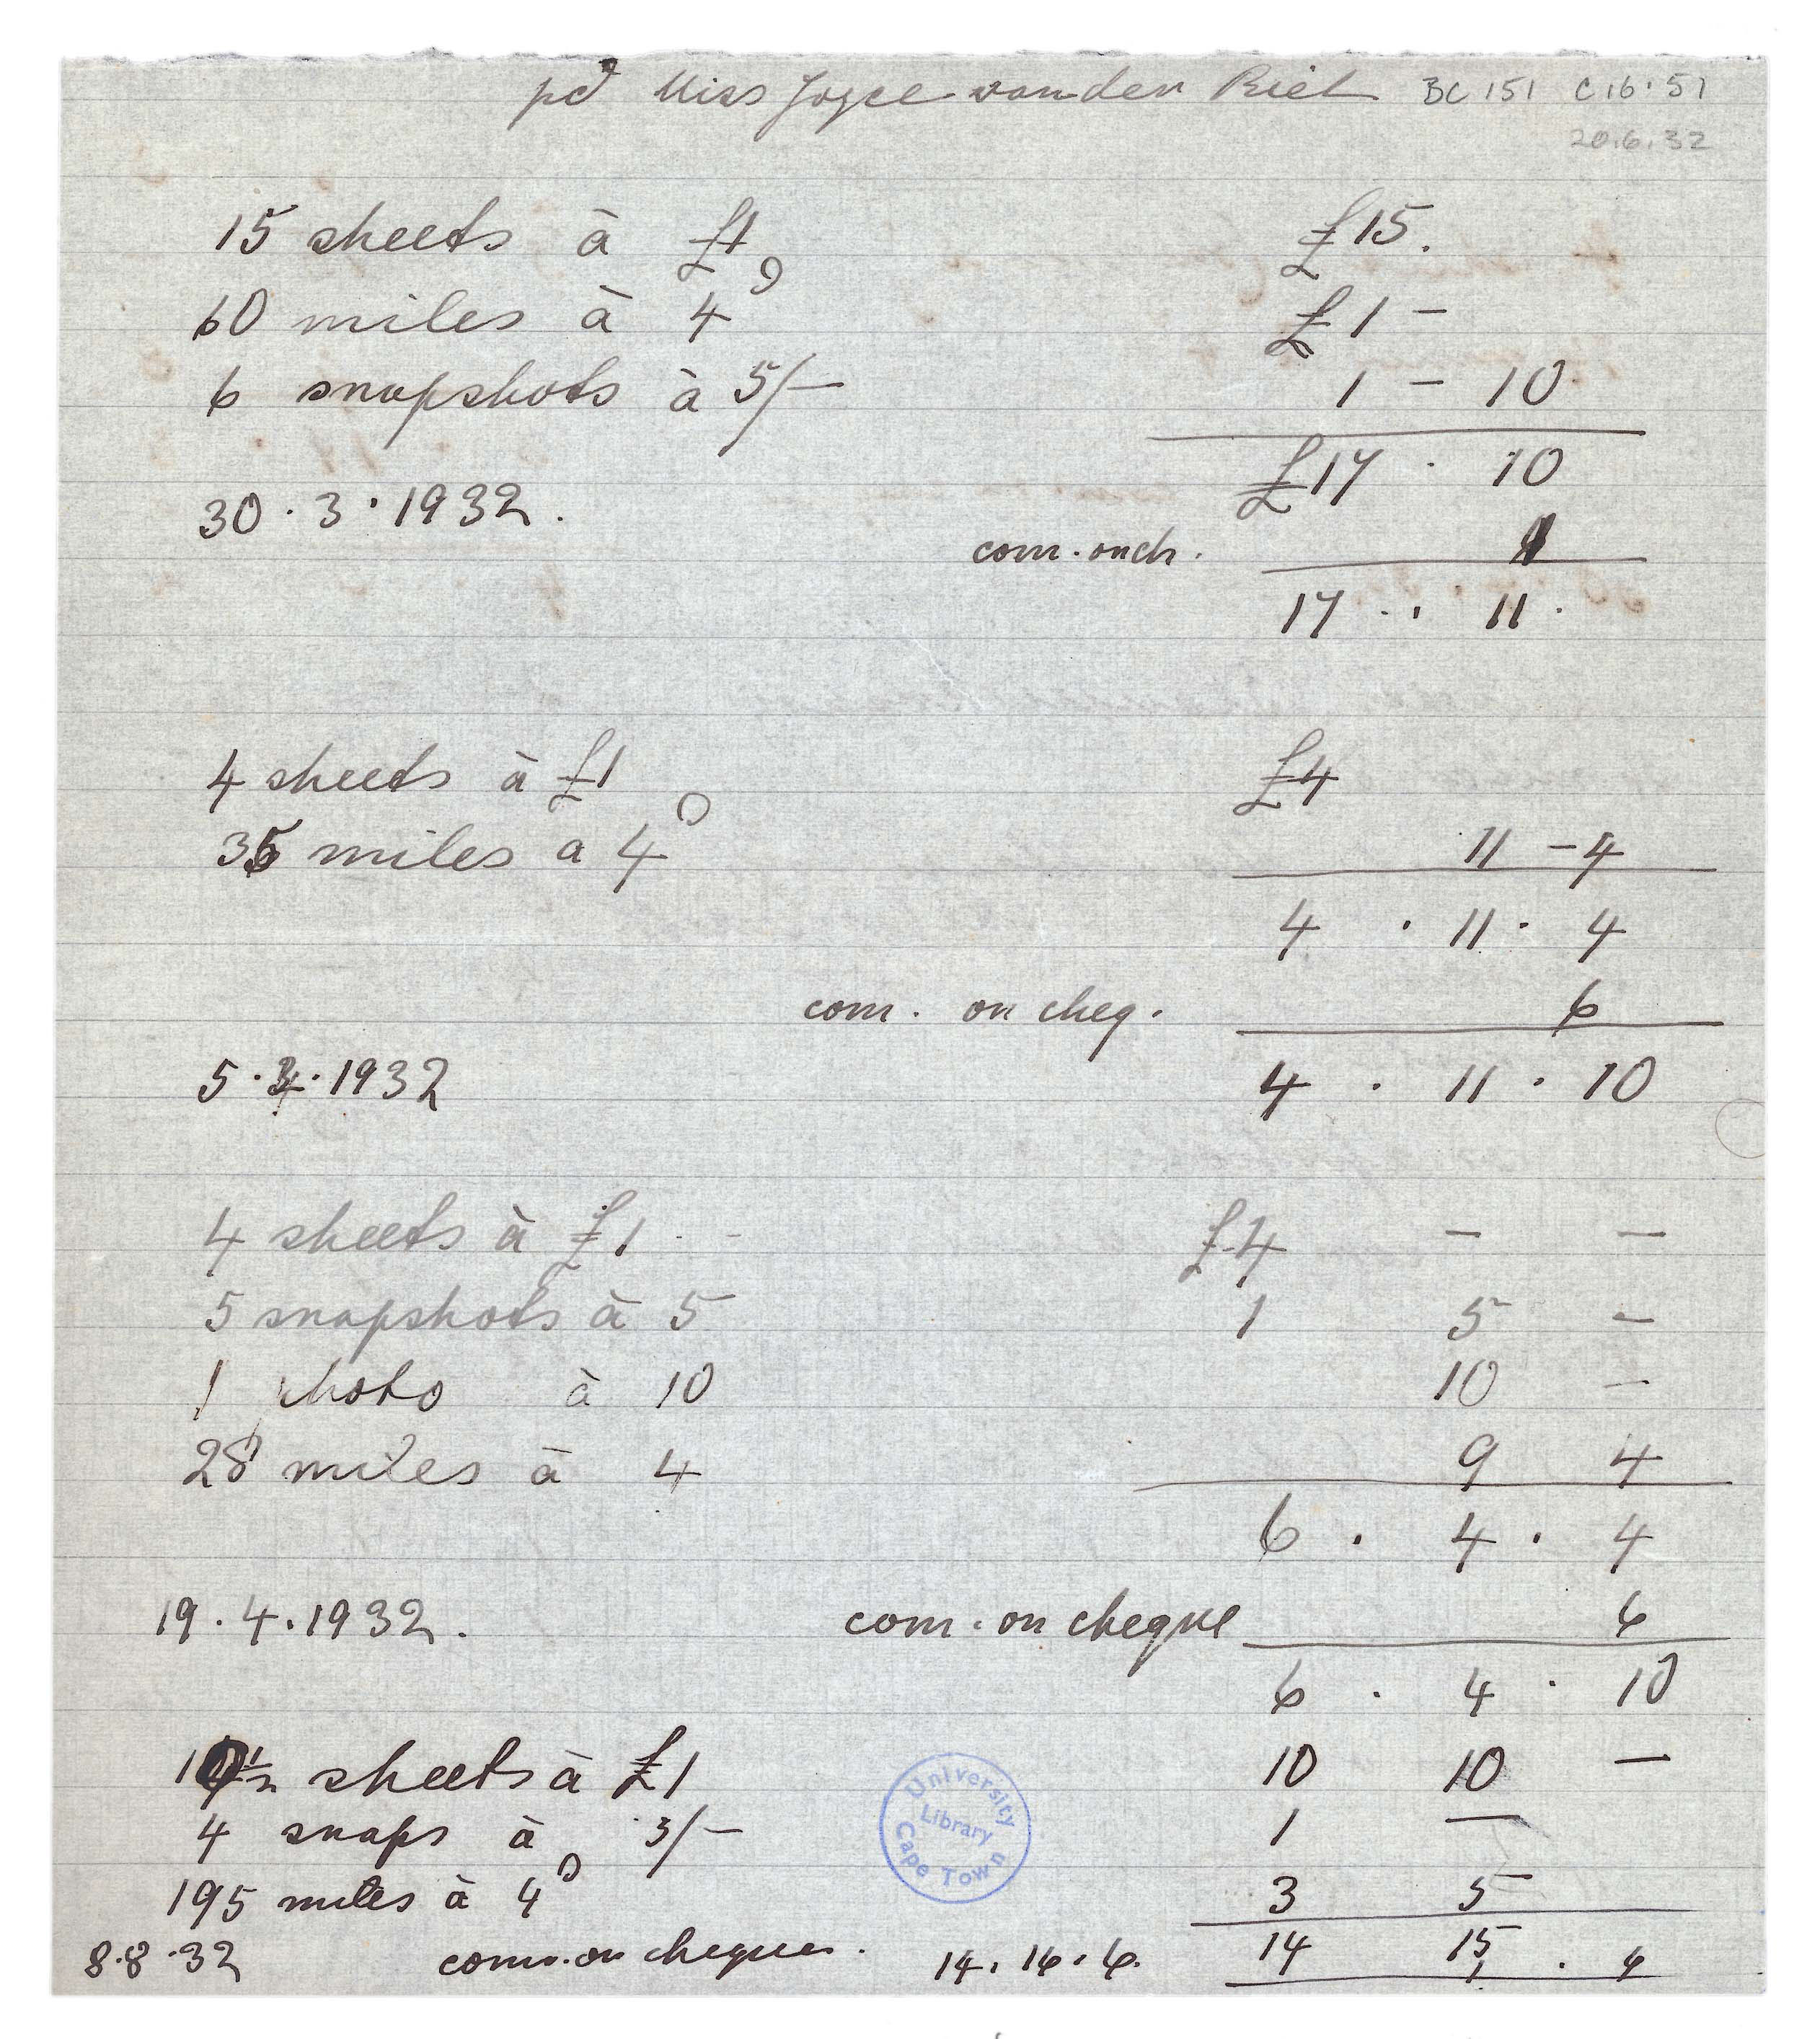 pd Miss Joyce van den Riet BC 151 C16.51
20.6.32
15 sheets à £1 £15.
60 miles à 4d £1 –
6 snapshots à 5/– 1 – 10
£17 . 10
30 . 3 . 1932.
com. on ch. 1
17 . . 11 .
4 sheets à £1 £4
35 miles a 4d 11 – 4
4 . 11 . 4
com. on cheq. 6
5 . 4 . 1932 4 . 11 . 10
4 sheets à £1 - - £4 – –
5 snapshots à 5 1 5 –
1 photo à 10 10 –
28 miles à 4 9 4
6 . 4 . 4
19 . 4 . 1932. com. on cheque 6
6 . 4 . 10
10½ sheets à £1 10 10 –
4 snaps à 3/– 1 –
195 miles à 4d 3 5
14 15
8.8.32 com. on cheque. 14. 16. 6. 1 . 6
University Library Cape Town